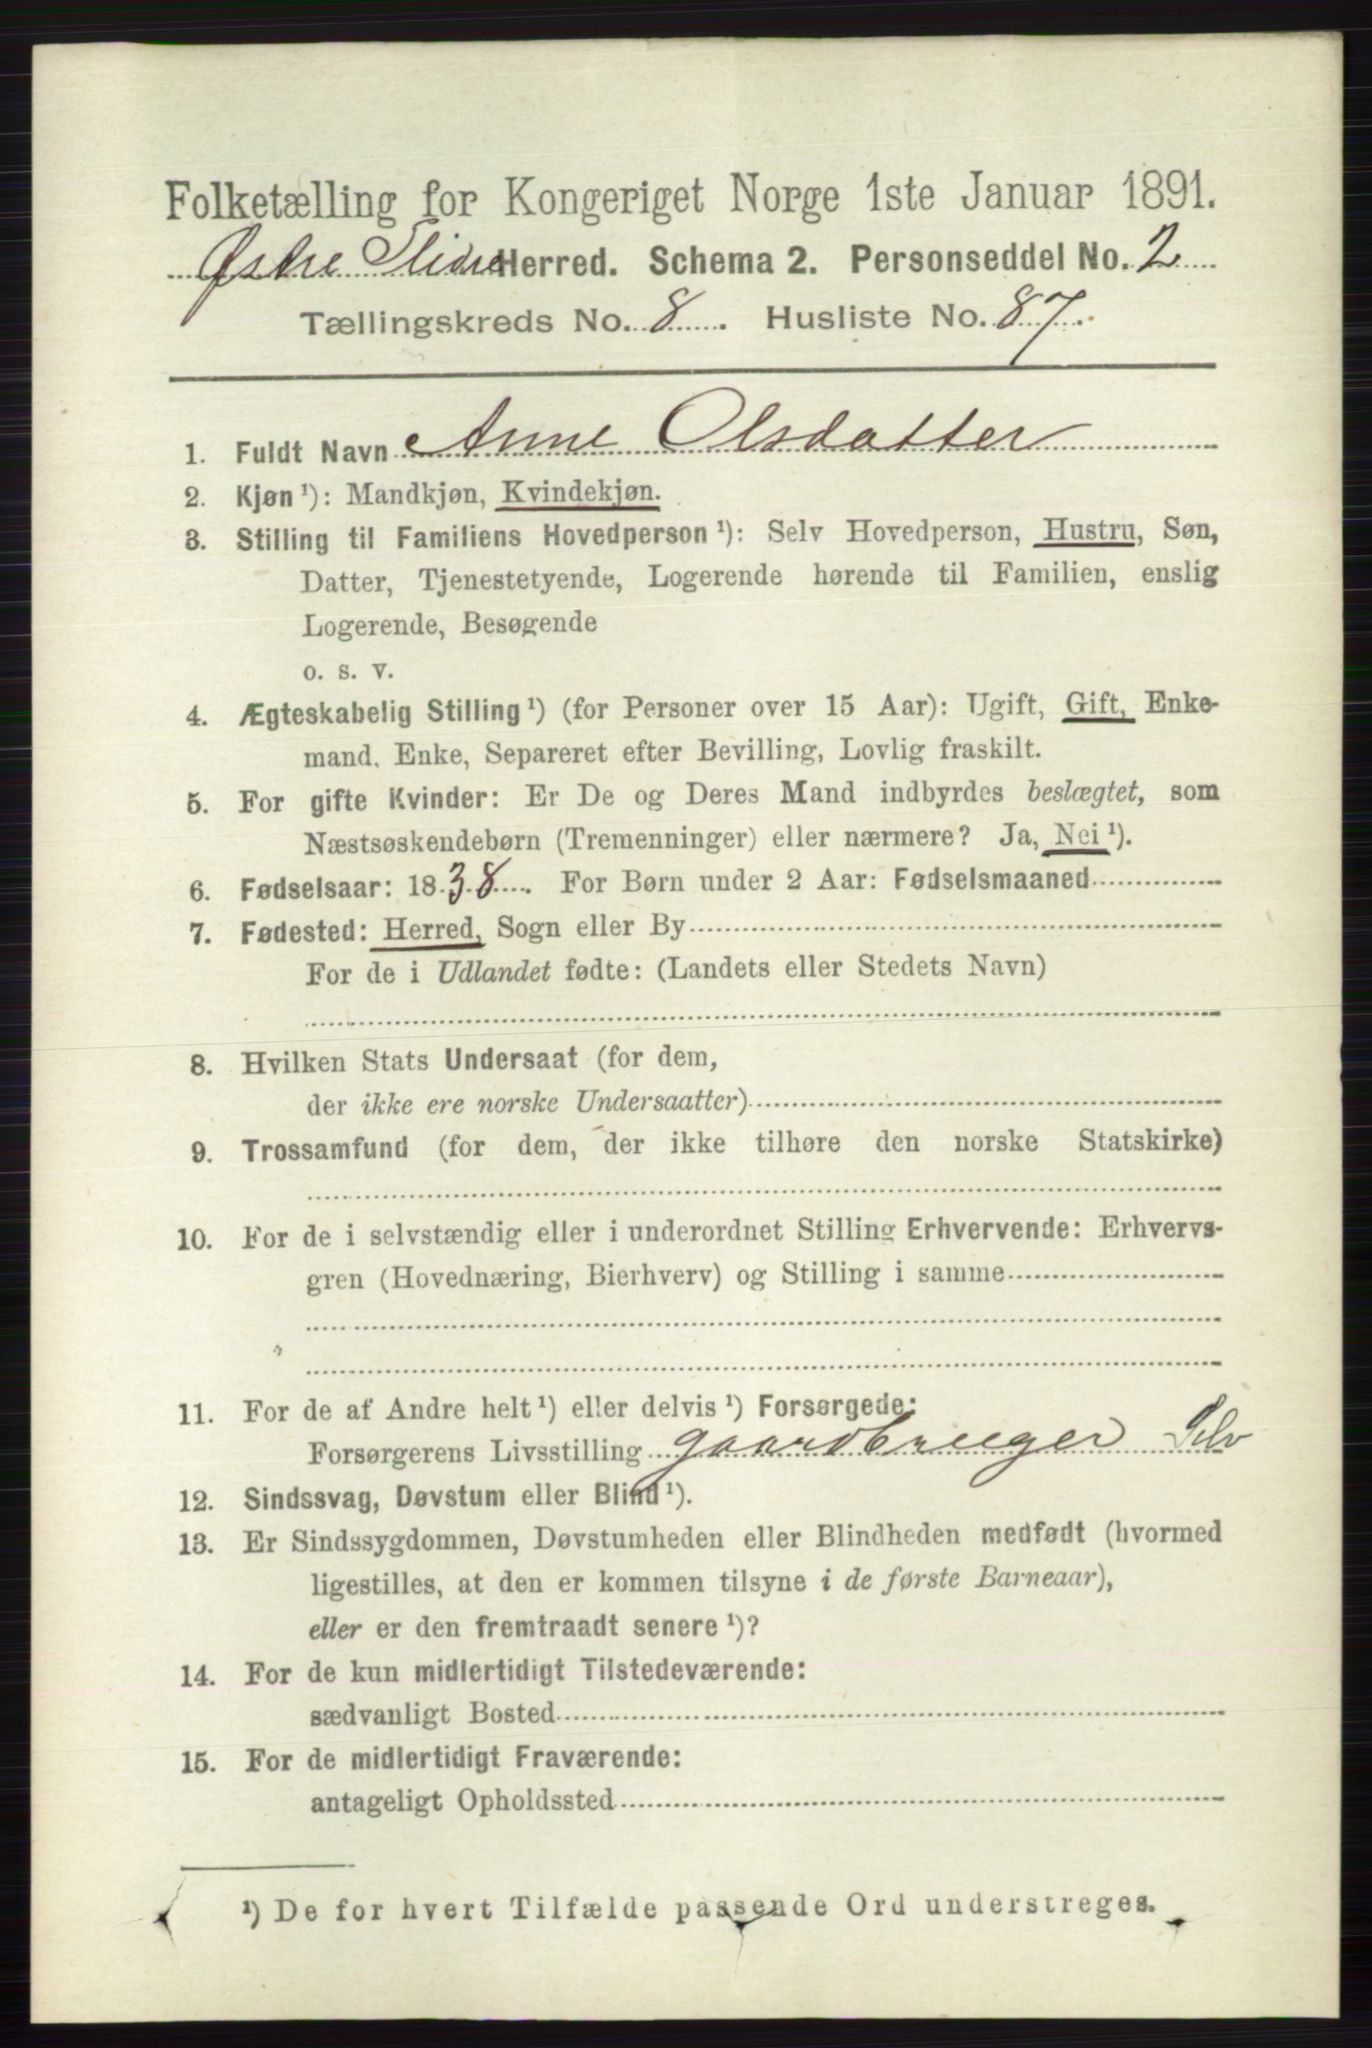 Folketælling for Kongeriget Norge 1ste Januar 1891.
Østre Slidre Herred. Schema 2. Personseddel No. 2
Tællingskreds No. 8. Husliste No. 87.
1. Fuldt Navn Anne Olsdatter
2. Kjøn ¹): Mandkjøn, Kvindekjøn.
3. Stilling til Familiens Hovedperson ¹): Selv Hovedperson, Hustru, Søn,
Datter, Tjenestetyende, Logerende hørende til Familien, enslig
Logerende, Besøgende
o. s. v.
4. Ægteskabelig Stilling ¹) (for Personer over 15 Aar): Ugift, Gift, Enke-
mand, Enke, Separeret efter Bevilling, Lovlig fraskilt.
5. For gifte Kvinder: Er De og Deres Mand indbyrdes beslægtet, som
Næstsøskendebørn (Tremenninger) eller nærmere? Ja, Nei ¹).
6. Fødselsaar: 1838. For Børn under 2 Aar: Fødselsmaaned
7. Fødested: Herred, Sogn eller By
For de i Udlandet fødte: (Landets eller Stedets Navn)
8. Hvilken Stats Undersaat (for dem,
der ikke ere norske Undersaatter)
9. Trossamfund (for dem, der ikke tilhøre den norske Statskirke)
10. For de i selvstændig eller i underordnet Stilling Erhvervende: Erhvervs-
gren (Hovednæring, Bierhverv) og Stilling i samme
11. For de af Andre helt ¹) eller delvis ¹) Forsørgede:
Forsørgerens Livsstilling gaardbruger Selv
12. Sindssvag, Døvstum eller Blind ¹).
13. Er Sindssygdommen, Døvstumheden eller Blindheden medfødt (hvormed
ligestilles, at den er kommen tilsyne i de første Barneaar),
eller er den fremtraadt senere ¹)?
14. For de kun midlertidigt Tilstedeværende:
sædvanligt Bosted
15. For de midlertidigt Fraværende:
antageligt Opholdssted
¹) De for hvert Tilfælde passende Ord understreges.